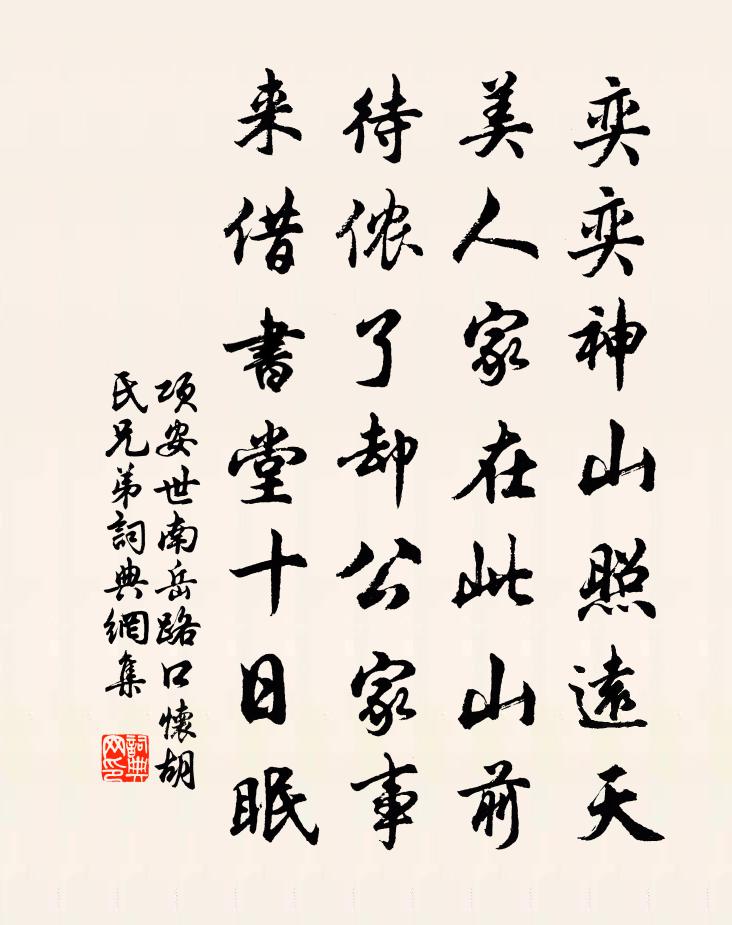 奕奕神山照遠天
美人家在此山前
待侬了却公家事
来借書堂十日眠
項安世南岳路口懷胡
氏兄弟詞典網集
詞典
网印